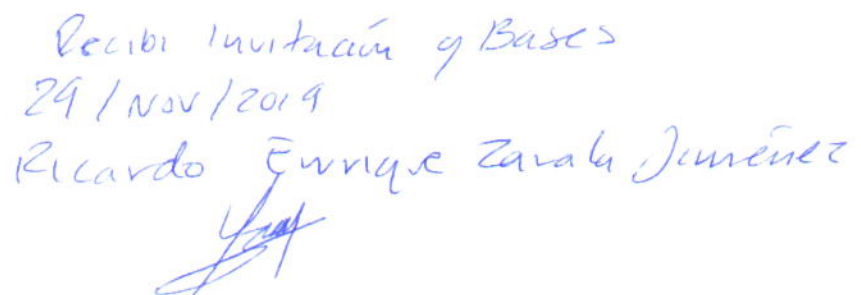 Recibi Invitación y Bases
29/Nov/2019
Ricardo Enrique Zavala Jiménez